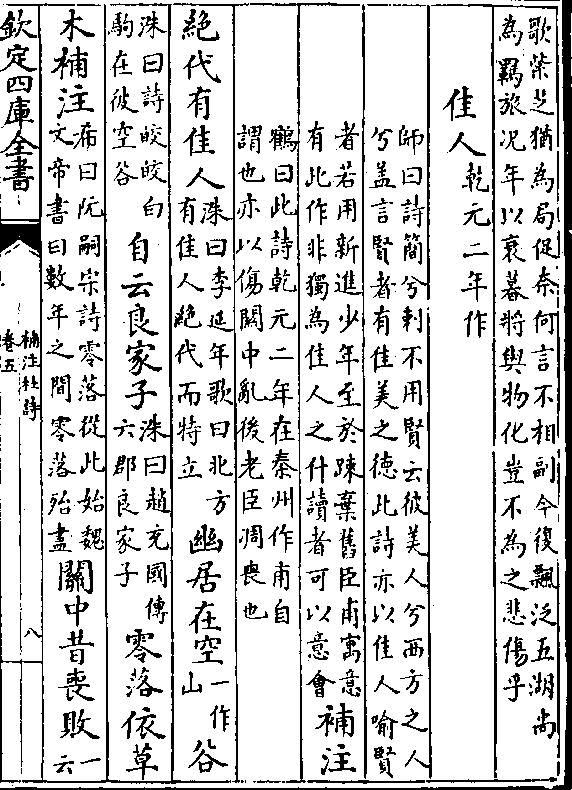 歌柴芝猶為局促奈何言不相副今復飄泛五湖尚
為羈旅况年以衰暮將與物化豈不為之悲傷乎
佳人乾元二年作
師曰詩簡兮刺不用賢云彼美人兮西方之人
兮盖言賢者有佳美之德此詩亦以佳人喻賢
者若用新進少年至於踈棄舊臣甫寓意
有此作非獨為佳人之什讀者可以意會補注
鶴曰此詩乾元二年在秦州作甫自
謂也亦以傷關中亂後老臣凋喪也
絶代有佳人洙曰李延年歌曰北方有佳人絶代而特立幽居在空一作山谷
洙曰詩皎皎白駒在彼空谷自云良家子洙曰趙充國傳六郡良家子零落依草
木補注希曰阮嗣宗詩零落從此始魏文帝書曰數年之間零落殆盡關中昔喪敗一云
欽定四庫全書
補注杜詩
卷五
八